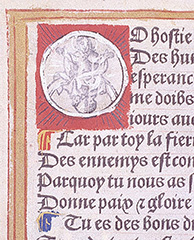 O hostie
Des hu
esperanc
me doibs
iours auc
Car par toy la fier
Des ennemys est con
Parquoy tu nous as s
Donne paix & gloire
Tu es des bons d